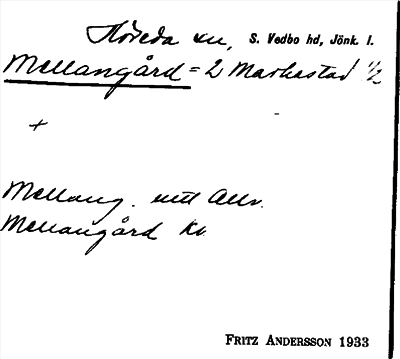 Höreda sn, S. Vedbo hd, Jönk. l.
Mellangård = 2 Markestad 1/2
+
Mellang. utt Allv.
Mellangård Kv
FRITZ ANDERSSON 1933